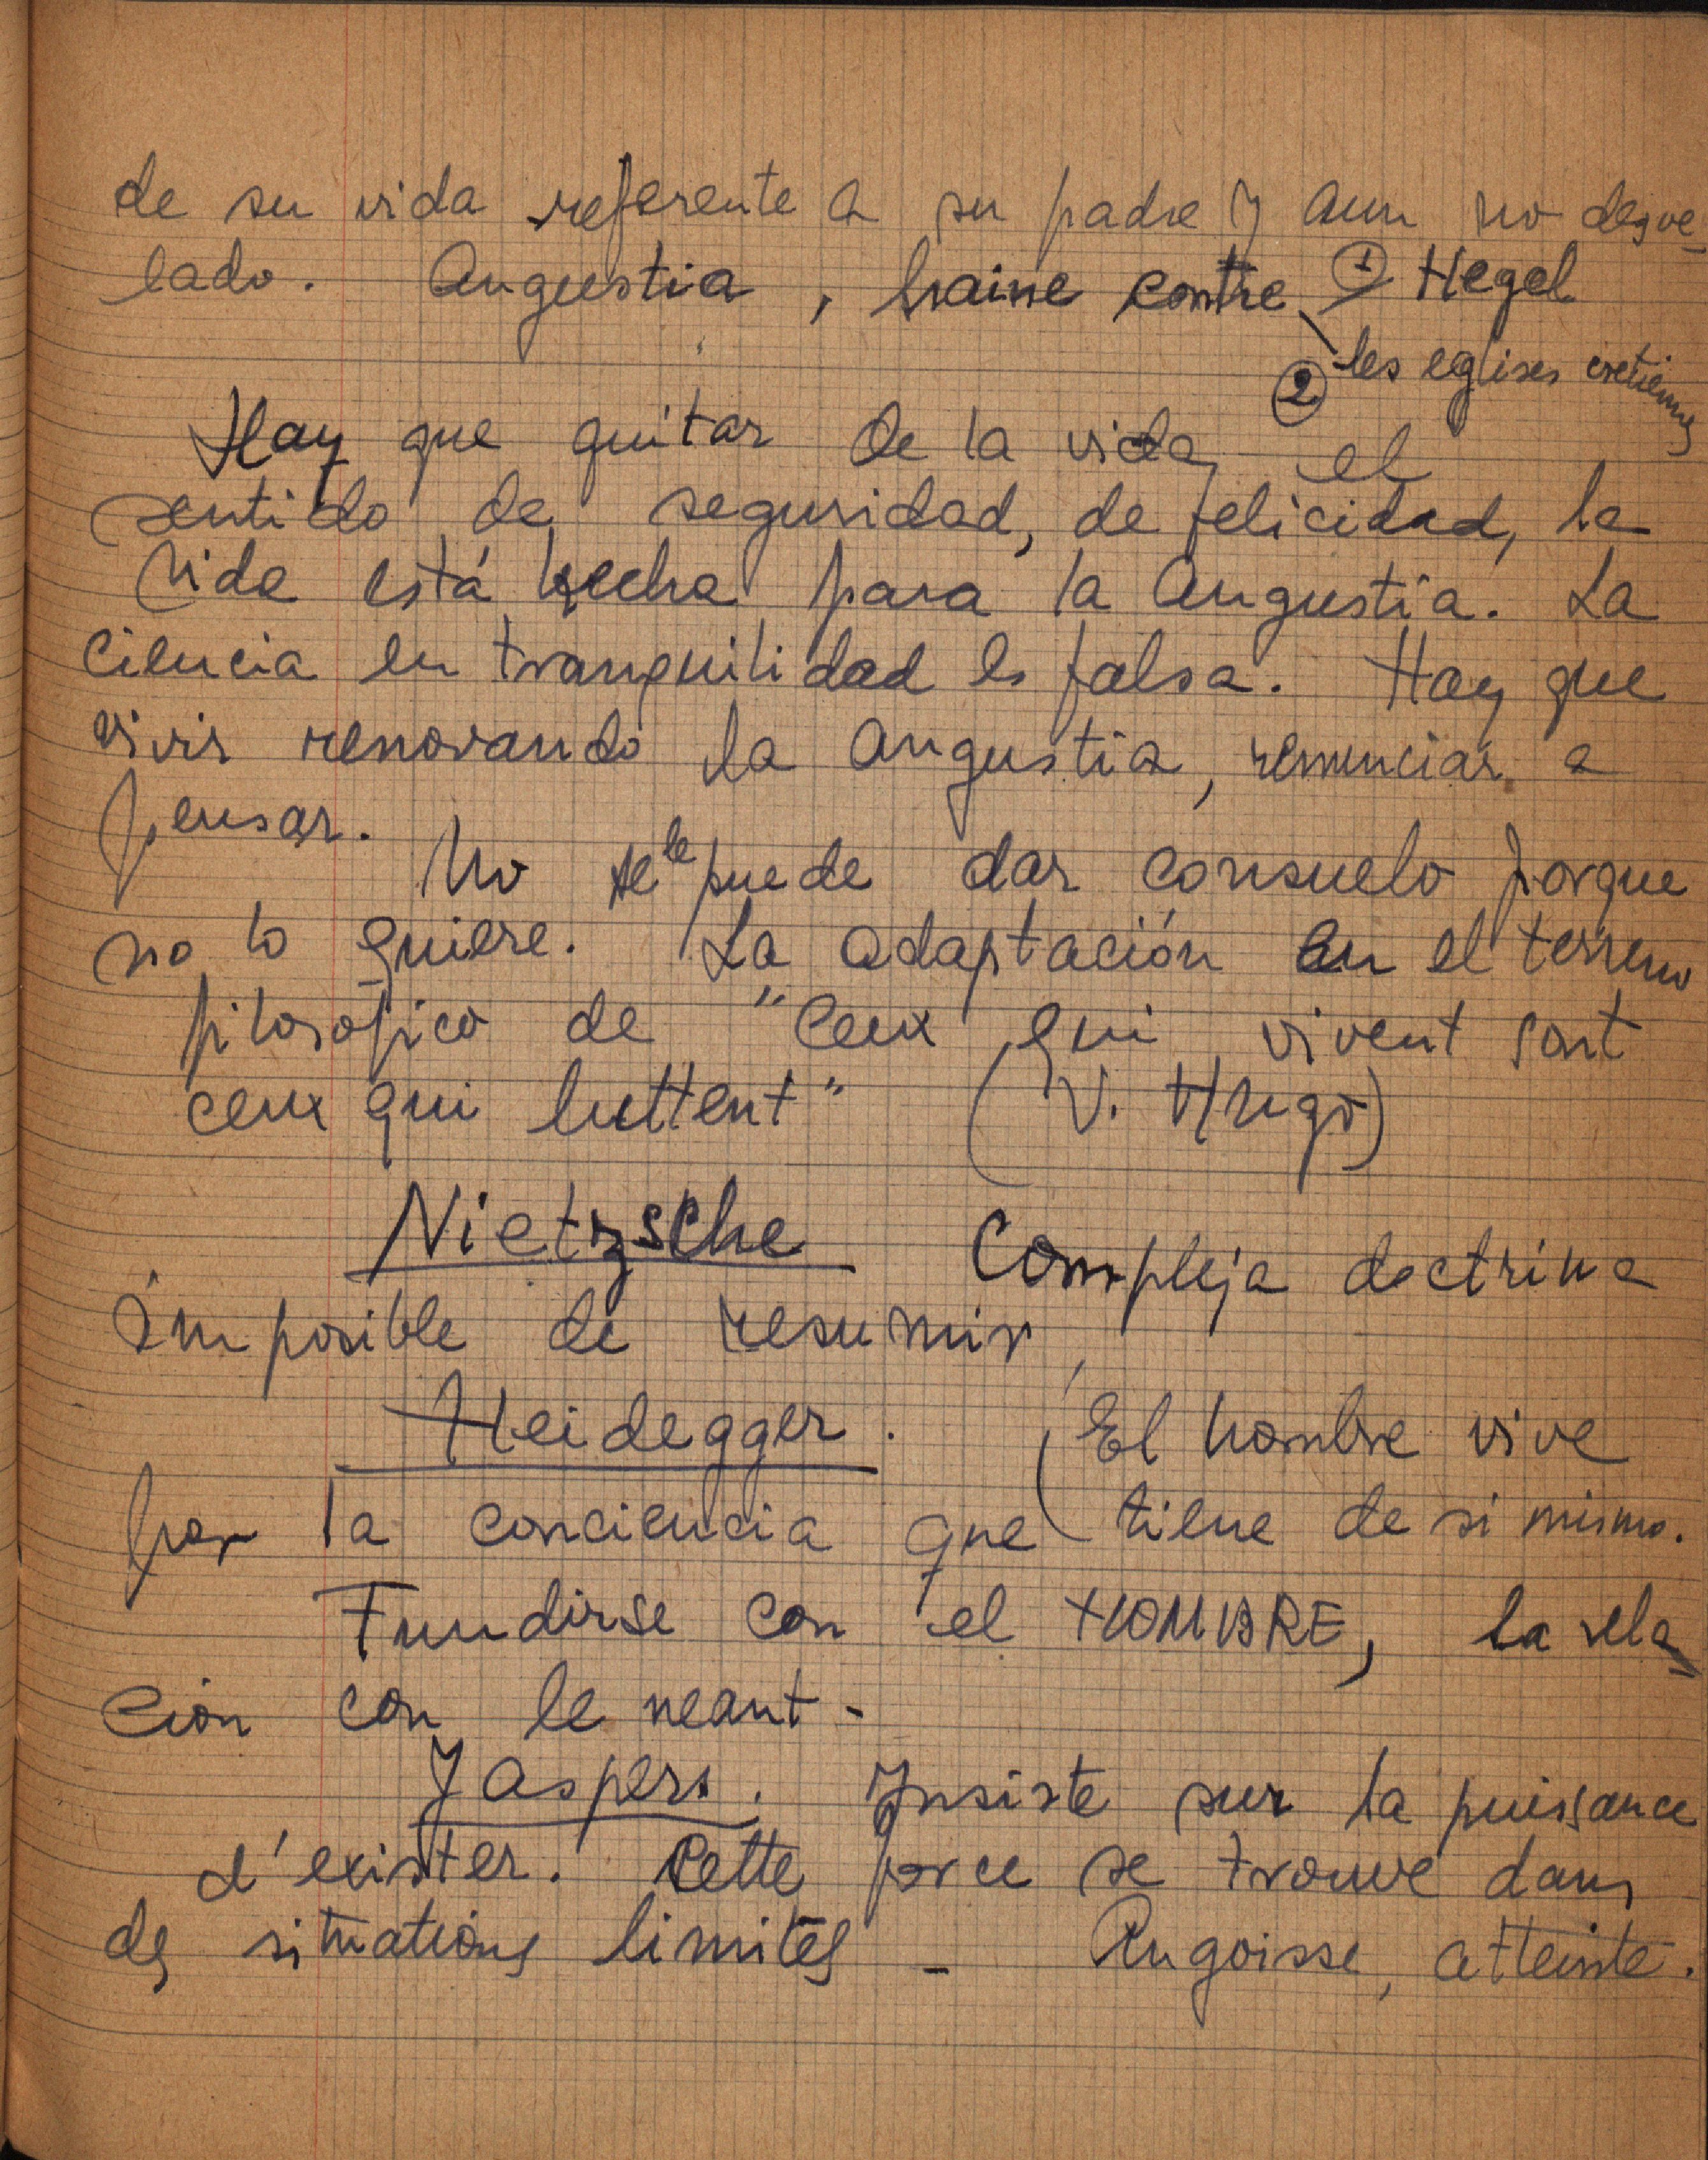 de su vida referente a su padre y aun no desve-
lado. Angustia, haine contre ① Hegel
② les eglises cretiennes
Hay que quitar de la vida el
sentido de seguridad, de felicidad, la
vida está hecha para la angustia. La
ciencia en tranquilidad es falsa. Hay que
vivir renovando la angustia, renunciar a
pensar.
No se le puede dar consuelo porque
no lo quiere. La adaptación en el terreno
filosofico de "Ceux qui vivent sont
ceux qui luttent" (V. Hugo)
Nietzsche Compleja doctrina
imposible de resumir,
Heidegger. El hombre vive
por la conciencia que tiene de si mismo.
Fundirse con el HOMBRE, la rela-
cion con le neant -
Jaspers. Insiste sur la puissance
d'exister. Cette force se trouve dans
des situations limites - Angoisse, atteinte.